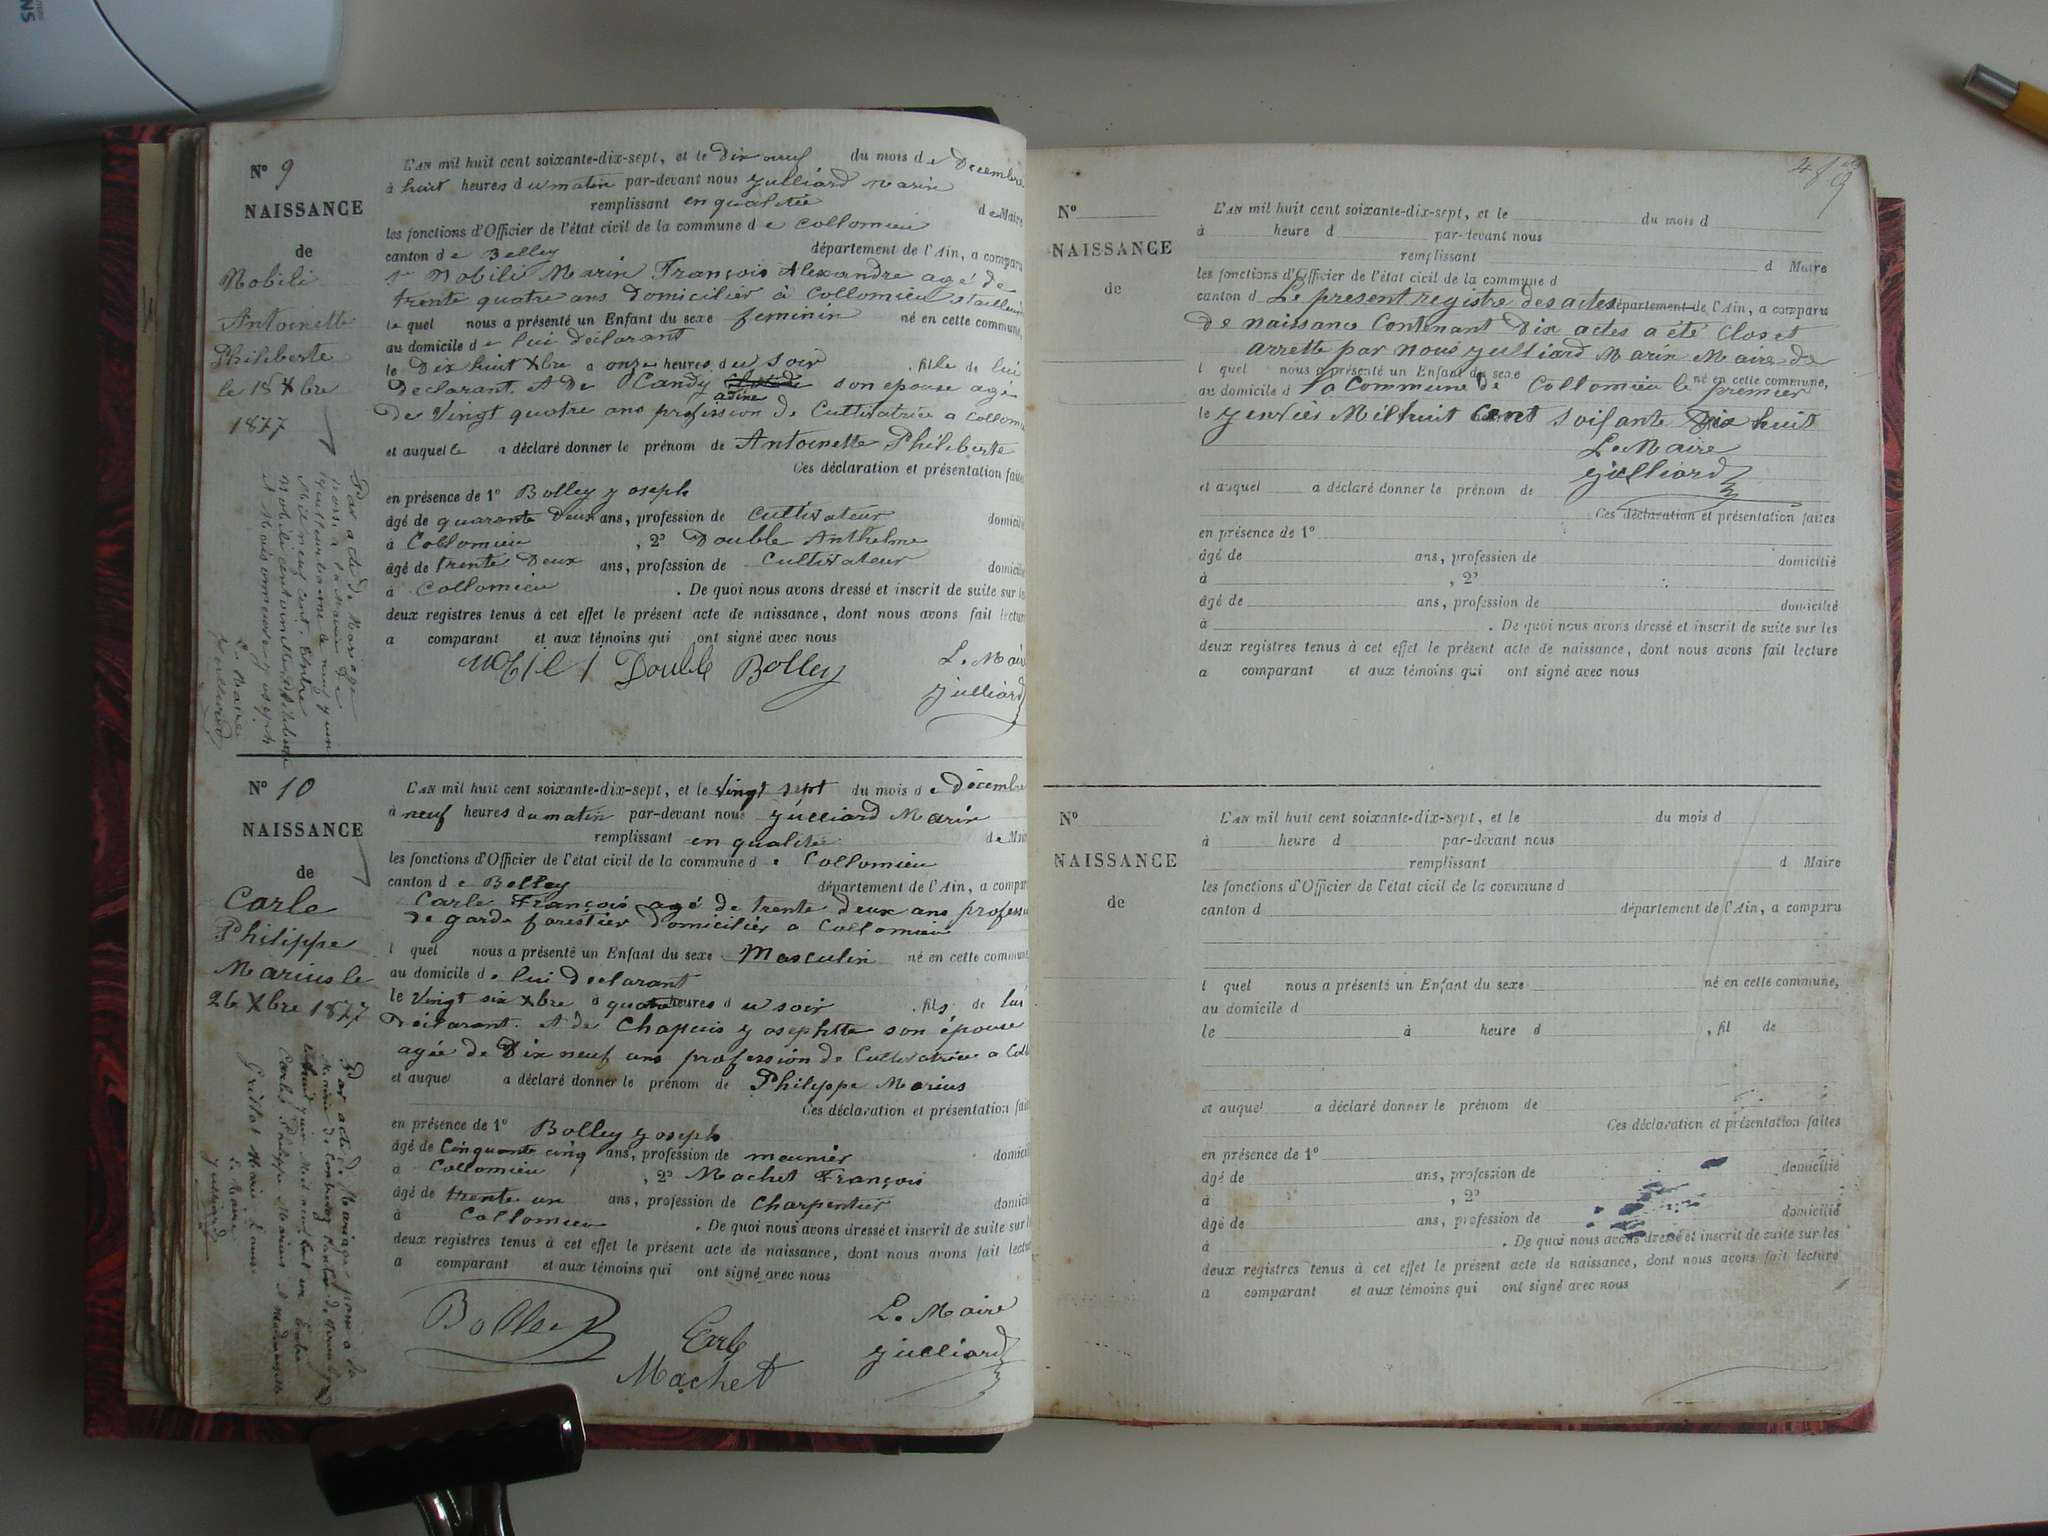 N° 9
NAISSANCE
de
Nobili
Antoinette
Philiberte
le 18 Xbre
1877
L'AN mil huit cent soixante-dix-sept, et le Dix neuf du mois de Decembre
à huit heures du matin par-devant nous Julliard Marin
remplissant en qualitée de Maire
les fonctions d'Officier de l'état civil de la commune de Collomieu
canton de Belley département de l'Ain, a comparu
Sr Nobili Marin François Alexandre agé de
trente quatre ans Domicilier à Collomieu
le quel nous a présenté un Enfant du sexe feminin né en cette commune,
au domicile de lui Déclarant
le Dix huit Xbre a onze heures du soir , fille de lui
Declarant. et De Candy adine son epouse agé
De Vingt quatre ans profession De Cultivatrice a Collomieu
et auquel le a déclaré donner le prénom de Antoinette Philiberte
Ces déclaration et présentation faites
en présence de 1° Bolley Joseph
âgé de quarante Deux ans, profession de Cultivateur domicilié
à Collomieu , 2° Double Anthelme
âgé de trente Deux ans, profession de Cultivateur domicilié
à Collomieu . De quoi nous avons dressé et inscrit de suite sur les
deux registres tenus à cet effet le présent acte de naissance, dont nous avons fait lecture
a comparant et aux témoins qui ont signé avec nous
Nobili Double Bolley Le Maire
Julliard
Par acte de Mariage
passé à la Mairie de
le neuf Juin
Mil neuf cent, Entre
Nobili Antoinette Philiberte
et Joseph
Le Maire
Julliard
N° 10
NAISSANCE
de
Carle
Philippe
Marius le
26 Xbre 1877
L'AN mil huit cent soixante-dix-sept, et le Vingt sept du mois de Décembre
à neuf heures du matin par-devant nous Julliard Marin
remplissant en qualité de Maire
les fonctions d'Officier de l'état civil de la commune de Collomieu
canton de Belley département de l'Ain, a comparu
Carle François agé de trente deux ans profession
De garde forestier Domicilier a Collomieu
l quel nous a présenté un Enfant du sexe Masculin né en cette commune
au domicile de lui declarant
le Vingt six Xbre à quatre heures du soir , fils de lui
Déclarant. et de Chapuis Josephtte son épouse
agée de Dix neuf ans profession de Cultivatrice a Coll
et auquel a déclaré donner le prénom de Philippe Marius
Ces déclaration et présentation faites
en présence de 1° Bolley Joseph
âgé de Cinquante cinq ans, profession de meunier domicilié
à Collomieu , 2° Machet François
âgé de trente un ans, profession de Charpentier domicilié
à Collomieu . De quoi nous avons dressé et inscrit de suite sur les
deux registres tenus à cet effet le présent acte de naissance, dont nous avons fait lecture
a comparant et aux témoins qui ont signé avec nous
Bolley Carle Le Maire
Machet Julliard
Par acte de Mariage passé à la
Mairie de
Juin Mil neuf cent un Entre
Carle Philippe Marius et Mademoiselle
Marie Louise
Le Maire
Julliard
489
N°
NAISSANCE
de
L'AN mil huit cent soixante-dix-sept, et le du mois d
à heure d par-devant nous
remplissant d Maire
les fonctions d'Officier de l'état civil de la commune d
canton d Le present registre des actes département de l'Ain, a comparu
De naissance Contenant Dix actes a été Clos et
arrette par nous Julliard Marin Maire de
l quel nous a présenté un Enfant du sexe né en cette commune,
au domicile d la Commune de Collomieu le premier
le Jenvier Mil huit Cent soixante Dix huit
Le Maire
Julliard
et auquel a déclaré donner le prénom de
Ces déclaration et présentation faites
en présence de 1°
âgé de ans, profession de domicilié
à , 2°
âgé de ans, profession de domicilié
à . De quoi nous avons dressé et inscrit de suite sur les
deux registres tenus à cet effet le présent acte de naissance, dont nous avons fait lecture
a comparant et aux témoins qui ont signé avec nous
N°
NAISSANCE
de
L'AN mil huit cent soixante-dix-sept, et le du mois d
à heure d par-devant nous
remplissant d Maire
les fonctions d'Officier de l'état civil de la commune d
canton d département de l'Ain, a comparu
l quel nous a présenté un Enfant du sexe né en cette commune,
au domicile d
le à heure d , fil de
et auquel a déclaré donner le prénom de
Ces déclaration et présentation faites
en présence de 1°
âgé de ans, profession de domicilié
à , 2°
âgé de ans, profession de domicilié
à . De quoi nous avons dressé et inscrit de suite sur les
deux registres tenus à cet effet le présent acte de naissance, dont nous avons fait lecture
a comparant et aux témoins qui ont signé avec nous